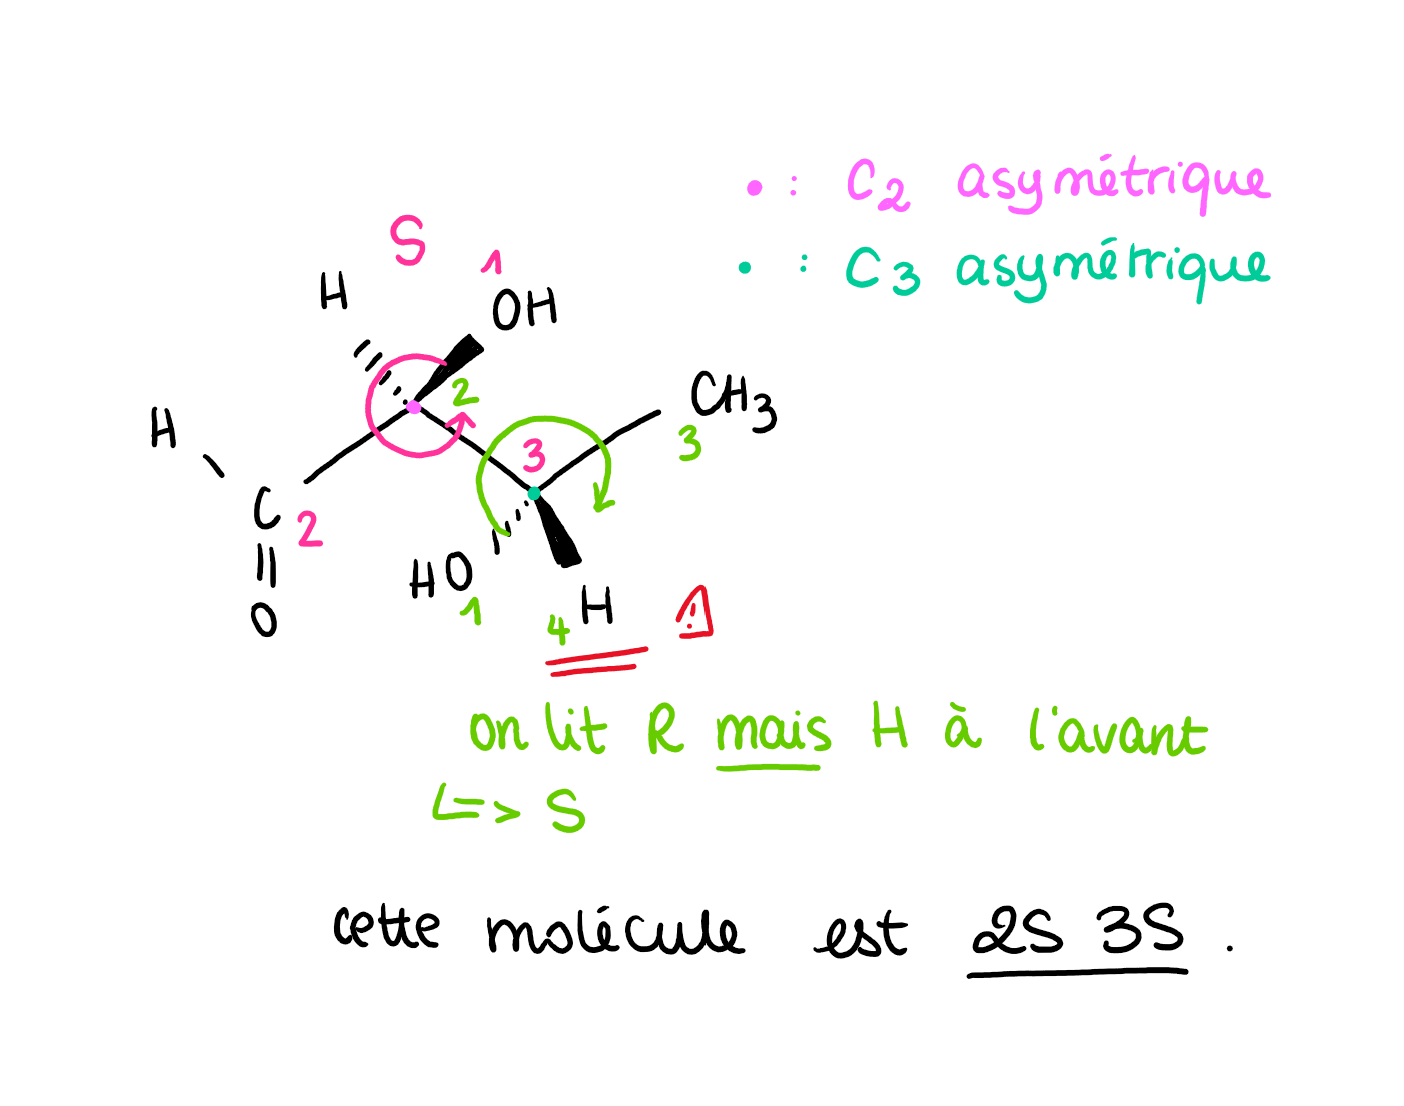 • : C2 asymétrique
• : C3 asymétrique
S
1
H
OH
2
CH3
H
3
3
C
2
HO
H
1
4
!
O
on lit R mais H à l'avant
L=> S
cette molécule est 2S 3S .